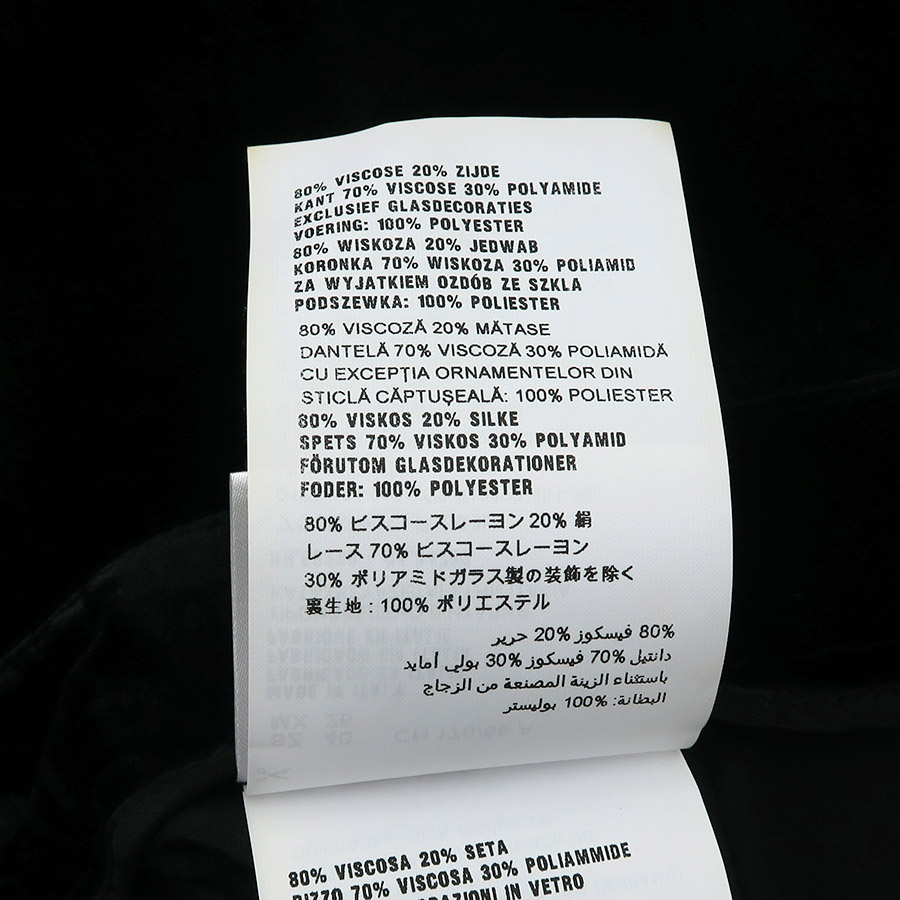 80% VISCOSE 20% ZIJDE
KANT 70% VISCOSE 30% POLYAMIDE
EXCLUSIEF GLASDECORATIES
VOERING: 100% POLYESTER
80% WISKOZA 20% JEDWAB
KORONKA 70% WISKOZA 30% POLIAMID
ZA WYJATKIEM OZDÓB ZE SZKLA
PODSZEWKA: 100% POLIESTER
80% VISCOZĂ 20% MĂTASE
DANTELĂ 70% VISCOZĂ 30% POLIAMIDĂ
CU EXCEPŢIA ORNAMENTELOR DIN
STICLĂ CĂPTUŞEALĂ: 100% POLIESTER
80% VISKOS 20% SILKE
SPETS 70% VISKOS 30% POLYAMID
FÖRUTOM GLASDEKORATIONER
FODER: 100% POLYESTER
80% ビスコースレーヨン 20% 絹
レース 70% ビスコースレーヨン
30% ポリアミドガラス製の装飾を除く
裏生地 : 100% ポリエステル
80% فيسكوز 20% حرير
دانتيل 70% فيسكوز 30% بولي أمايد
باستثناء الزينة المصنعة من الزجاج
البطانة: 100% بوليستر
MADE IN ITALY
MX 26
SZ 40 CN 170/96 A
80% VISCOSA 20% SETA
PIZZO 70% VISCOSA 30% POLIAMMIDE
IN VETRO